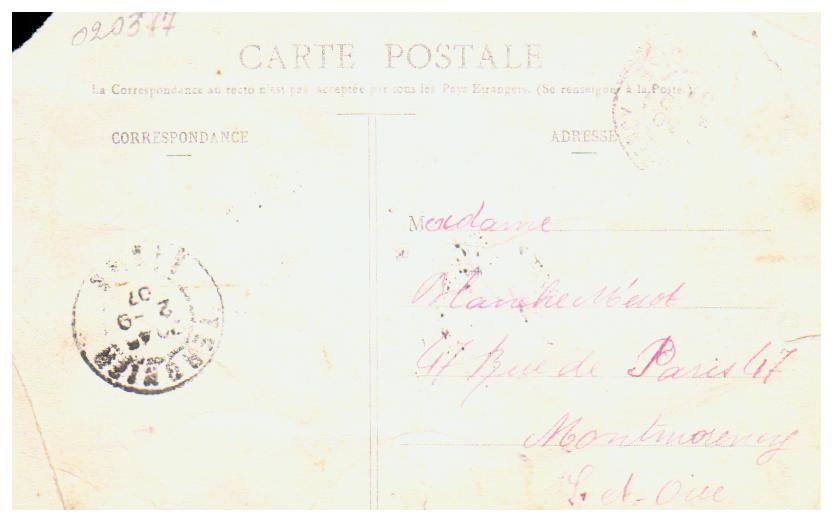 020317
CARTE POSTALE
La Correspondance au recto n'est pas acceptée par tous les Pays Etrangers. (Se renseigner à la Poste.)
CORRESPONDANCE
ADRESSE
Madame
Blanche Mérot
47 Rue de Paris 47
Montmorency
S. et-Oise
07
2 -9